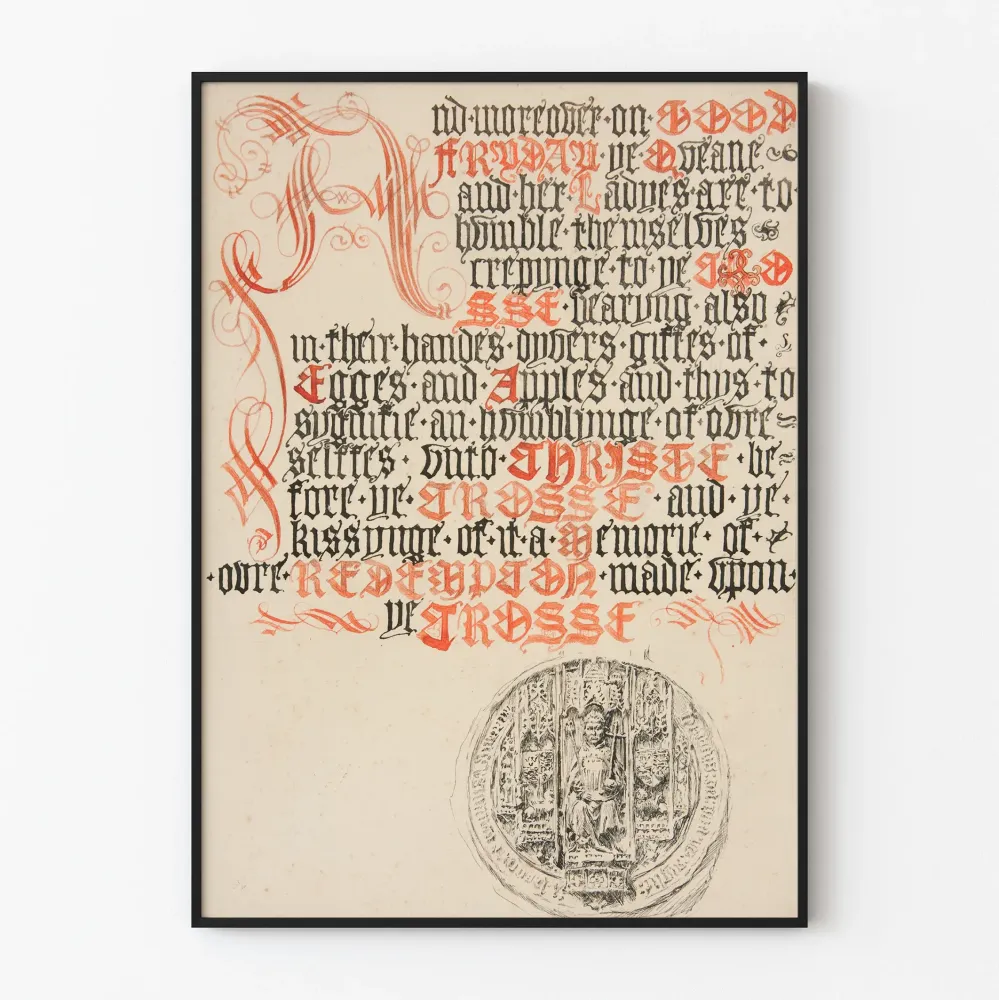 And·moreover·on·GOOD
FRYDAY·ye·Qveane
and·her·Ladyes·are·to
hvmble·themselves
crepynge·to·ye CRO
SSE bearyng·also
in·their·handes·dyvers·giftes·of·
Egges·and·Apples·and·thvs·to
sygnifie·an·hvmblynge·of·ovre
selffes·vnto·CHRISTE·be
fore·ye·CROSSE·and·ye·
kissynge·of·it·a·Memorie·of·
·ovre·REDEMPTON·made·vpon·
ye CROSSE